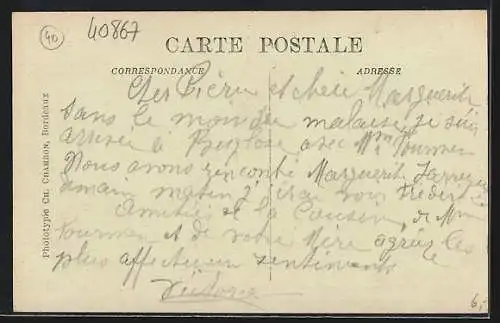 40
40867
CARTE POSTALE
CORRESPONDANCE
ADRESSE
Phototype CH. CHAMBON, Bordeaux
Cher Pierre et chère Marguerite
Sans le moindre malaise, je suis
arrivée à Buglose avec Mme
Nous avons rencontré Marguerite
demain matin j'irai voir
Amitiés de la de Mme
et de votre Mère agréez les
plus affectueux sentiments
6,-